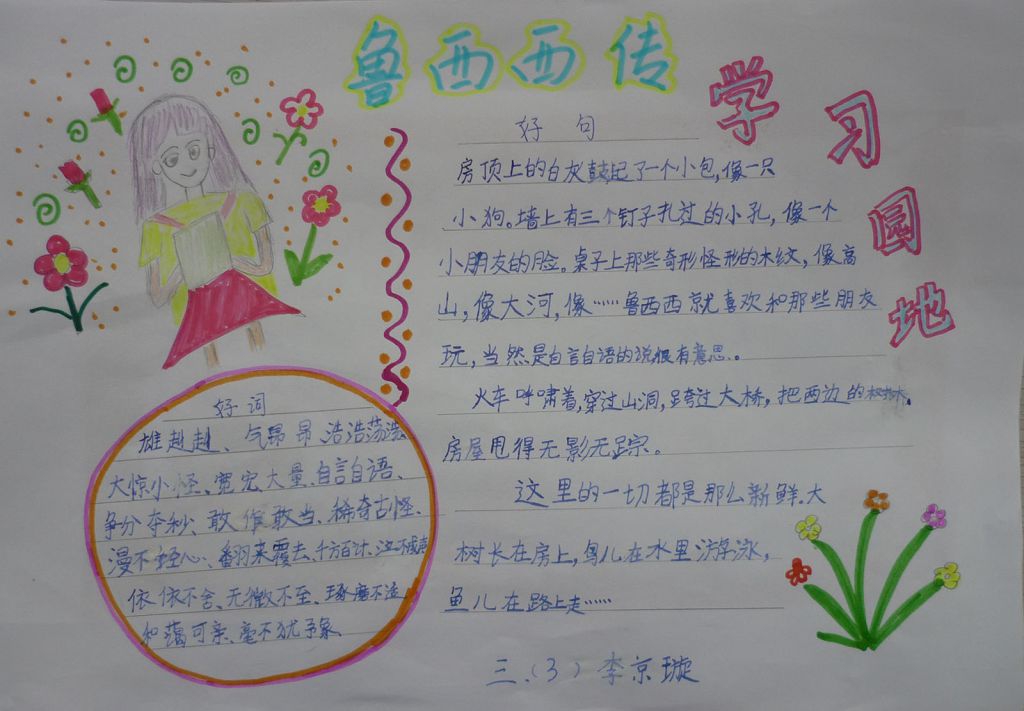 鲁西西传
学习园地
好句
房顶上的白灰鼓起了一个小包,像一只
小狗。墙上有三个钉子扎过的小孔,像一个
小朋友的脸。桌子上那些奇形怪形的木纹,像高
山,像大河,像……鲁西西就喜欢和那些朋友
玩,当然是自言自语的说很有意思。
火车呼啸着,穿过山洞,跨过大桥,把两边的树木。
房屋甩得无影无踪。
这里的一切都是那么新鲜.大
树长在房上,鸟儿在水里游泳,
鱼儿在路上走……
三.(3)李京璇
好词
雄赳赳、气昂昂浩浩荡荡
大惊小怪、宽宏大量、自言自语、
争分夺秒、敢作敢当、稀奇古怪、
漫不经心、翻来覆去、千方百计、泣不成声
依依不舍、无微不至、琢磨不透
和蔼可亲、毫不犹予象